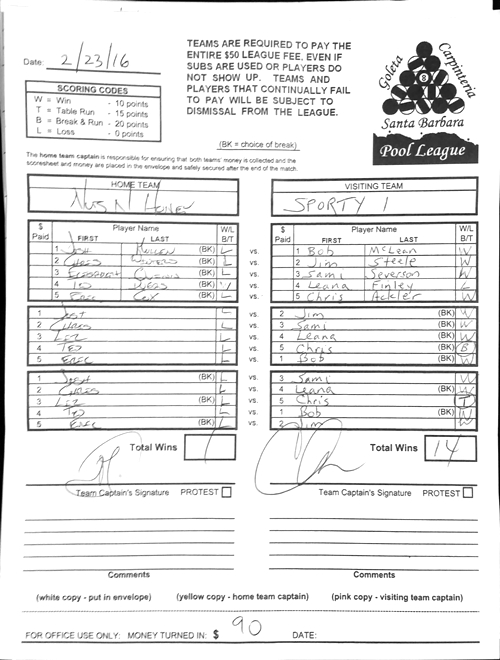 Date: 2/23/16
TEAMS ARE REQUIRED TO PAY THE
ENTIRE $50 LEAGUE FEE, EVEN IF
SUBS ARE USED OR PLAYERS DO
NOT SHOW UP. TEAMS AND
PLAYERS THAT CONTINUALLY FAIL
TO PAY WILL BE SUBJECT TO
DISMISSAL FROM THE LEAGUE.
Goleta Carpinteria
8
Santa Barbara
Pool League
SCORING CODES
W = Win - 10 points
T = Table Run - 15 points
B = Break & Run - 20 points
L = Loss - 0 points
(BK = choice of break)
The home team captain is responsible for ensuring that both teams' money is collected and the
scoresheet and money are placed in the envelope and safely secured after the end of the match.
HOME TEAM
Nuts N Honey
VISITING TEAM
SPORTY 1
$ Paid Player Name FIRST LAST W/L B/T
$ Paid Player Name FIRST LAST W/L B/T
1 Josh (BK) L vs. 1 Bob McLean W
2 Chris (BK) L vs. 2 Jim Steele W
3 Elizabeth (BK) L vs. 3 Sami Severson W
4 Ted (BK) W vs. 4 Leana Finley L
5 Eric Cox (BK) L vs. 5 Chris Ackler W
1 Josh L vs. 2 Jim (BK) W
2 Chris L vs. 3 Sami (BK) W
3 Liz L vs. 4 Leana (BK) W
4 Ted L vs. 5 Chris (BK) B
5 Eric L vs. 1 Bob (BK) W
1 Josh (BK) L vs. 3 Sami W
2 Chris L vs. 4 Leana (BK) W
3 Liz (BK) L vs. 5 Chris T
4 Ted L vs. 1 Bob (BK) W
5 Eric (BK) L vs. 2 Jim W
Total Wins
Total Wins 14
Team Captain's Signature PROTEST
Team Captain's Signature PROTEST
Comments
Comments
(white copy - put in envelope) (yellow copy - home team captain) (pink copy - visiting team captain)
FOR OFFICE USE ONLY: MONEY TURNED IN: $ 90 DATE: